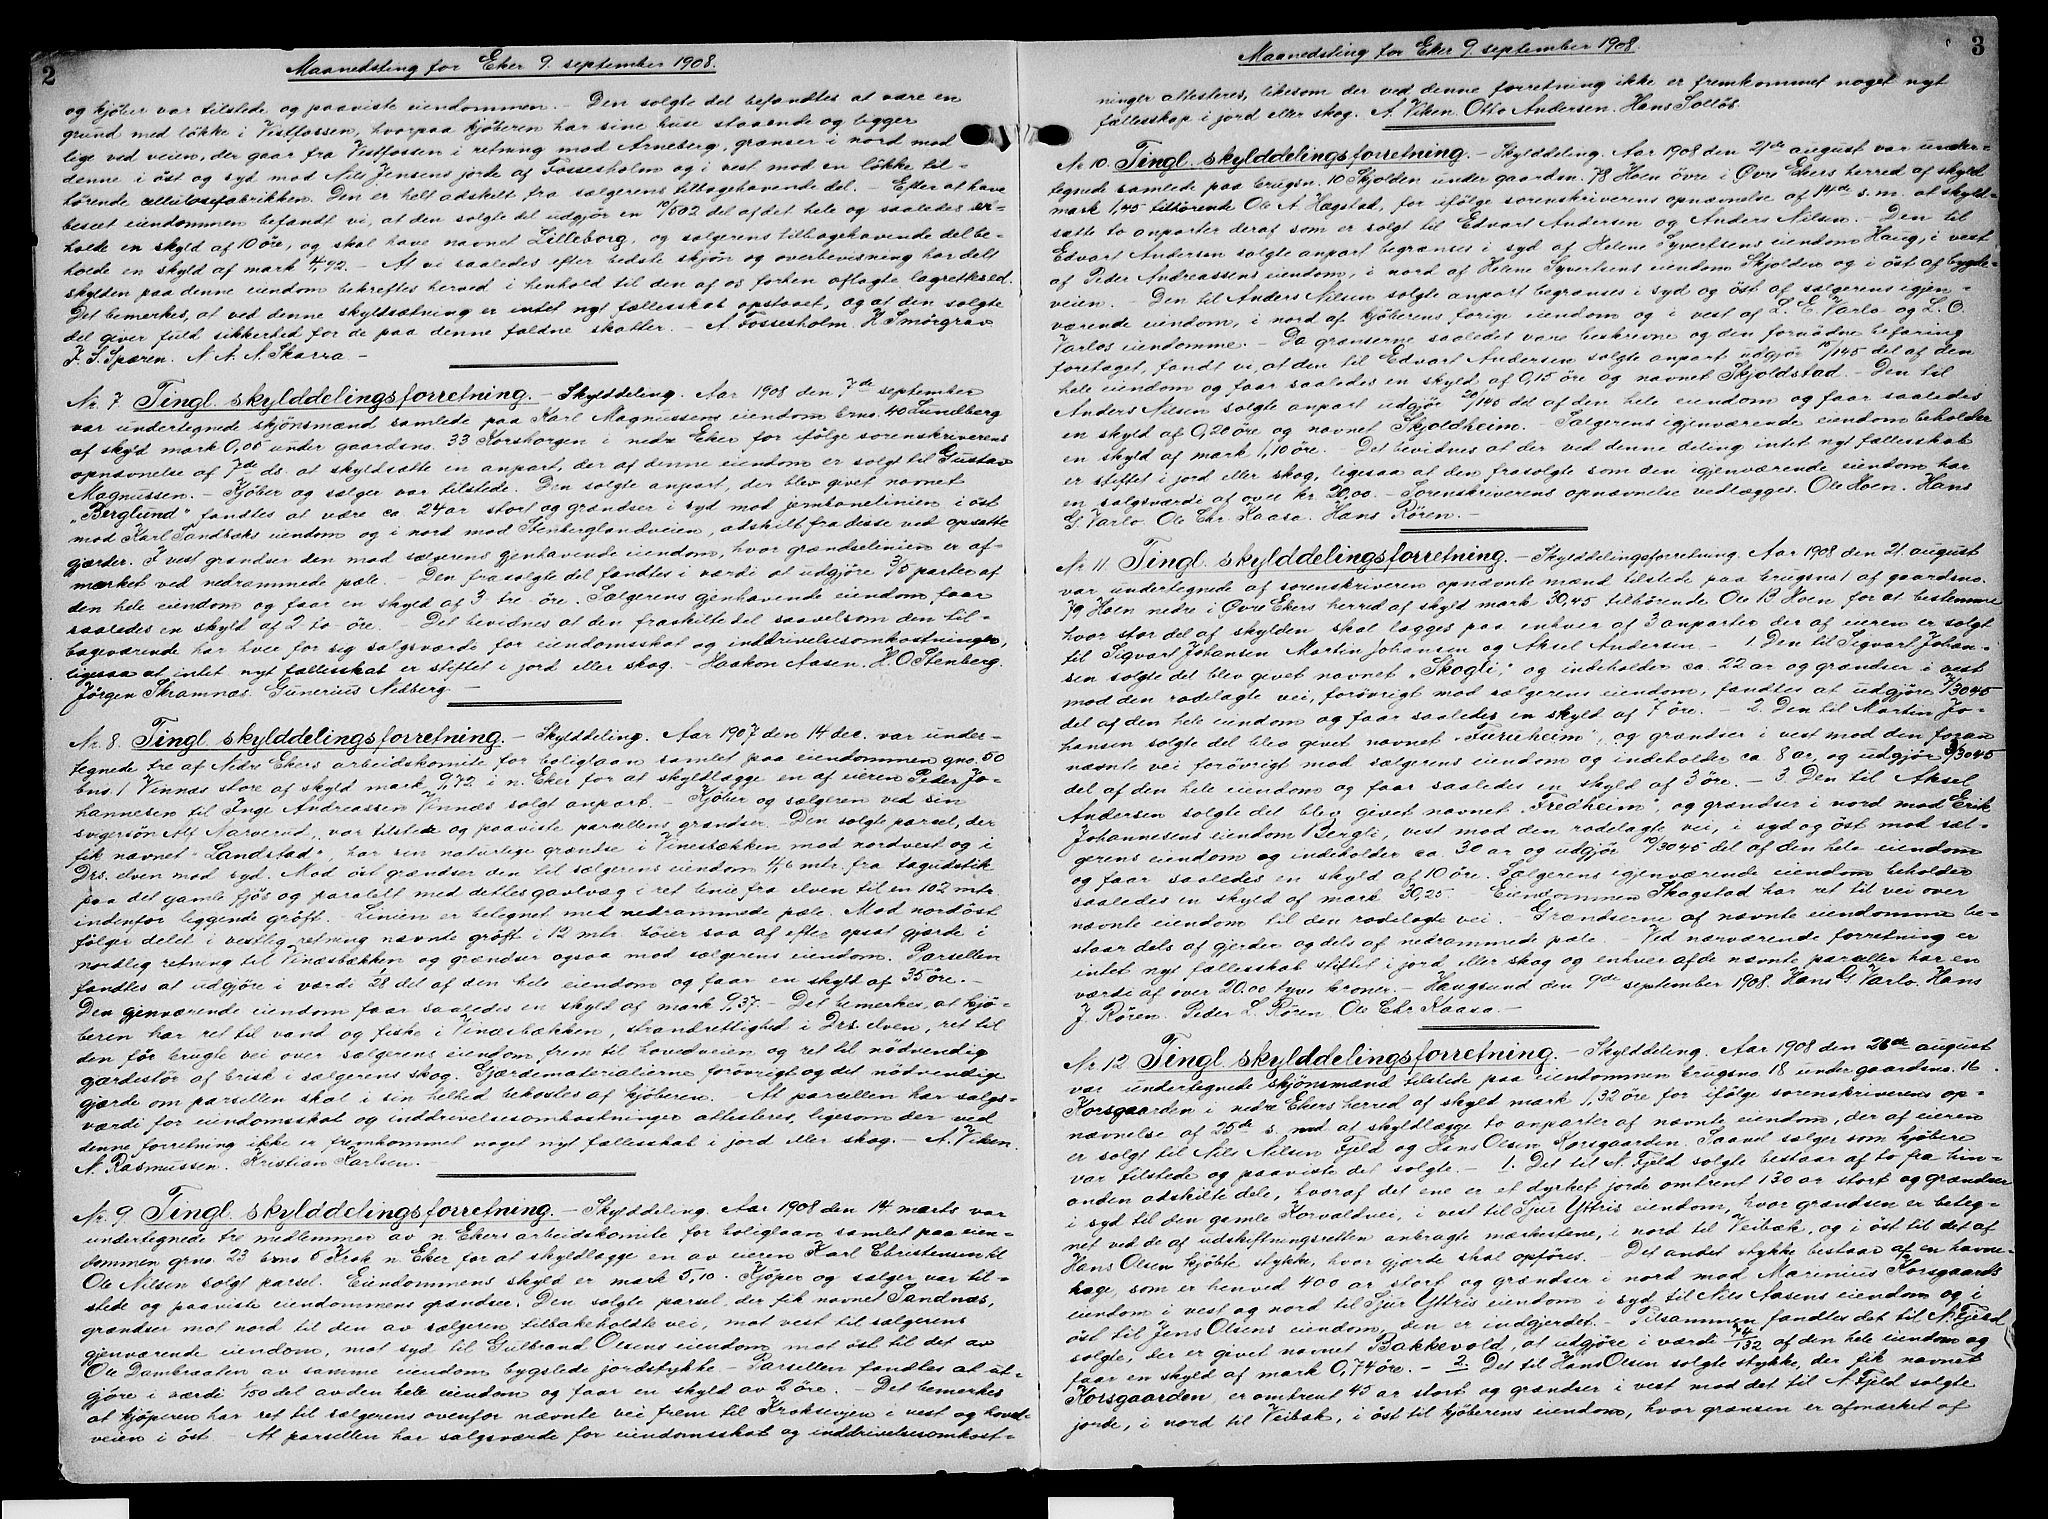 2
Maanedsting for Eker 9. september 1908.
og kjøber var tilstede og paaviste eiendommen. – Den solgte del befandtes at være en
grund med løkke i Vestfossen, hvorpaa kjøberen har sine huse staaende og ligger
lige ved veien, der gaar fra Vestfossen i retning mod Arneberg, grænser i nord mod
denne i öst og syd mod Nils Jensens jorde af Fossesholm og i vest mod en løkke til-
hørende cellulosefabrikken. Den er helt adskilt fra sælgerens tilbagehavende del. – Efter at have
beseet eiendommen befandt vi, at den solgte del udgjør en 10/502 del af det hele og saaledes er-
holde en skyld af 10 öre, og skal have navnet Lilleborg, og sælgerens tilbagehavende del be-
holde en skyld af mark 4,92. – At vi saaledes efter bedste skjøn og overbevisning har delt
skylden paa denne eiendom bekreftes herved i henhold til den af os forhen aflagte lagretksed.
Det bemerkes, at ved denne skyldsætning er intet nyt fællesskab opstaaet, og at den solgte
del giver fuld sikkerhed for de paa denne faldne skatter. – A. Fossesholm. H. Smörgrav
J. S. Spæren. N. A. N. Skarra –
Nr. 7 Tingl. skylddelingsforretning. – Skylddeling. Aar 1908 den 7de september
var undertegnede skjönsmænd samlede paa Karl Magnussens eiendom brno. 40 Lundberg
af skyld mark 0,05 under gaardsno. 33 Korshorgen i nedre Eker for ifølge sorenskriverens
opnævnelse af 7de ds. at skyldsætte en anpart, der af denne eiendom er solgt til Gustav
Magnussen. – Kjøber og sælger var tilstede. Den solgte anpart, der blev givet navnet
„Berglund" fandtes at være ca 24 ar stort og grændser i syd mod jernbanelinien i öst
mod Karl Sandbæks eiendom og i nord mod Stenberglandveien, adskilt fra disse ved opsatte
gjærder. I vest grændser den mod sælgerens gjenhavende eiendom, hvor grændselinien er af-
merket ved nedrammede pæle. – Den frasolgte del fandtes i værdi at udgjöre 3/5 parter af
den hele eiendom og faar en skyld af 3 tre öre. Sælgerens gjenhavende eiendom faar
saaledes en skyld af 2 to öre. – Det bevidnes at den fraskilte del saavelsom den til-
bageværende har hver for sig salgsværde for eiendomsskat og inddrivelsesomkostninger,
ligesaa at intet nyt fællesskab er stiftet i jord eller skog. – Haakon Aasen. H. O. Stenberg.
Jörgen Skramnæs. Gunerius Nedberg –
Nr. 8. Tingl. skylddelingsforretning. – Skylddeling. Aar 1907 den 14 dec. var under-
tegnede tre af Nedre Ekers arbeidskomite for boliglaan samlet paa eiendommen gno. 50
bno. 1 Vinnæs store af skyld mark 9,72 i n. Eker for at skyldlægge en af eieren Peder Jo-
hannesen til Inge Andreassen Vinnæs solgt anpart. – Kjøber og sælgeren ved sin
svigersön Alf Narverud, var tilstede og paaviste parcellens grændser. – Den solgte parsel, der
fik navnet "Landstad", har sin naturlige grændse i Vinesbækken mod nordvest og i
Drs. elven mod syd. Mod öst grændser den til sælgerens eiendom 4,6 mtr. fra tagudstik
paa det gamle fjös og paralelt med dettes gavlvæg i ret linie fra elven til en 102 mtr.
indenfor liggende gröft. – Linien er betegnet med nedrammede pæle. Mod nordöst
fölger delet i vestlig retning nævnte gröft i 12 mtr. böier saa af efter opsat gjærde i
nordlig retning til Vinæsbækken og grændser ogsaa mod sælgerens eiendom. Parsellen
fandtes at udgjöre i værdi 1/28 del af den hele eiendom og faar en skyld af 35 öre. –
Den gjenværende eiendom faar saaledes en skyld af mark 9,37. – Det bemerkes, at kjö-
beren har ret til vand og fiske i Vinæsbækken, strandrettighed i Drs. elven, ret til
den för brugte vei over sælgerens eiendom frem til hovedveien og ret til nödvendig
gjærdestör af brisk i sælgerens skog. Gjærdematerialierne forövrigt og det nödvendige
gjærde om parsellen skal i sin helhed bekostes af kjöberen. – At parsellen har salgs-
værde for eiendomsskat og inddrivelsesomkostninger attesteres, ligesom der ved
denne forretning ikke er fremkommet noget nyt fællesskab i jord eller skog. A. Viken.
N. Rasmussen. Kristian Karlsen. –
Nr. 9 Tingl. skylddelingsforretning. – Skylddeling. Aar 1908 den 14 marts var
undertegnede tre medlemmer av n. Ekers arbeidskomite for boliglaan samlet paa eien-
dommen grno. 23 brno. 5 Krok n. Eker for at skyldlægge en av eieren Karl Christensen til
Ole Nilsen solgt parsel. Eiendommens skyld er mark 5,10. Kjöper og sælger var til-
stede og paaviste eiendommens grændser. Den solgte parsel, der fik navnet Sandnæs,
grændser mot nord til den av sælgeren tilbakeholdte vei, mot vest til sælgerens
gjenværende eiendom, mot syd til Gulbrand Olsens eiendom mot öst til det av
Ole Dambraaten av samme eiendom bygslede jordstykke – Parsellen fandtes at ut-
gjöre i værdi 1/150 del av den hele eiendom og faar en skyld av 2 öre. – Det bemerkes
at kjöperen har ret til sælgerens ovenfor nævnte vei frem til Krokseveien i vest og hoved-
veien i öst – At parsellen har salgsværde for eiendomsskat og inddrivelsesomkost-
3
Maanedsting for Eker 9. september 1908.
ninger attesteres, likesom der ved denne forretning ikke er fremkommet noget nyt
fællesskap i jord eller skog. A. Viken. Otto Andersen. Hans Solløs.
Nr 10. Tingl. skylddelingsforretning. – Skylddeling. Aar 1908 den 21de august var under-
tegnede samlede paa brugsn. 10 Skjolden under gaardsn. 78 Hoen övre i Övre Ekers herred af skyld
mark 1,45 tilhörende Ole A. Hægstad, for ifølge sorenskriverens opnævnelse af 14de s. m. at skyld-
sætte to anparter deraf som er solgt til Edvart Andersen og Anders Nilsen. – Den til
Edvart Andersen solgte anpart begrænses i syd af Helene Syvertsens eiendom Haug, i vest
af Peder Andreassens eiendom, i nord af Helene Syvertsens eiendom Skjolden og i öst af bygde-
veien. – Den til Anders Nilsen solgte anpart begrænses i syd og öst af sælgerens igjen-
værende eiendom, i nord af kjøberens forige eiendom og i vest af L. E. Varlo og L. O.
Varlos eiendomme. – Da grænserne saaledes vare beskrevne og den fornødne befaring
foretaget, fandt vi, at den til Edvart Andersen solgte anpart udgjør 15/145 del af den
hele eiendom og faar saaledes en skyld af 0,15 öre og navnet Skjoldstad. – Den til
Anders Nilsen solgte anpart udgjør 20/145 del af den hele eiendom og faar saaledes
en skyld af 0,20 öre og navnet Skjoldheim. – Sælgerens igjenværende eiendom beholder
en skyld af mark 1,10 öre. – Det bevidnes at der ved denne deling intet nyt fællesskab
er stiftet i jord eller skog, ligesaa at den frasolgte som den igjenværende eiendom har
en salgsværdi af over kr. 20,00. – Sorenskriverens opnævnelse vedlægges. Ole Hoen. Hans
G. Varlo. Ole Chr. Kaasa. Hans Røren. –
Nr 11. Tingl. skylddelingsforretning. – Skylddelingsforretning. Aar 1908 den 21 august
var undertegnede af sorenskriveren opnævnte mænd tilstede paa brugsno 1 af gaardsno.
79 Hoen nedre i Övre Ekers herred af skyld mark 30,45 tilhörende Ole B. Hoen for at bestemme
hvor stor del af skylden skal lægges paa enhver af 3 anparter der af eieren er solgt
til Sigvart Johansen Martin Johansen og Aksel Andersen. – 1. Den til Sigvart Johan-
sen solgte del blev givet navnet „Skogli", og indeholder ca. 22 ar og grændser i vest
mod den rodelagte vei, forövrigt mod sælgerens eiendom, fandtes at udgjöre 7/3045
del af den hele eiendom og faar saaledes en skyld af 7 öre. – 2. Den til Martin Jo-
hansen solgte del blev givet navnet "Furuheim", og grændser i vest mod den foran
nævnte vei forövrigt mod sælgerens eiendom og indeholder ca 8 ar, og udgjör 3/3045
del af den hele eiendom og faar saaledes en skyld af 3 öre. – 3. Den til Aksel
Andersen solgte del blev givet navnet "Fredheim", og grændser i nord mod Erik
Johannesens eiendom Bergli, vest mod den rodelagte vei, i syd og öst mod sæl-
gerens eiendom og indeholder ca. 30 ar og udgjör 10/3045 det af den hele eiendom
og faar saaledes en skyld af 10 öre. Sælgerens igjenværende eiendom beholder
saaledes en skyld af mark 30,25. – Eiendommen Skogstad har ret til vei over
nævnte eiendom til den rodelagte vei. – Grændserne af nævnte eiendomme be-
staar dels af gjerder og dels af nedrammede pæle. – Ved nærværende forretning er
intet nyt fællesskab stiftet i jord eller skog og enhver af de nævnte parseller har en
værdi af over 20.00 tyve kroner. – Haugsund den 9de september 1908. Hans G. Varlo. Hans
J. Røren. Peder L. Røren. Ole Chr. Kaasa. –
Nr 12 Tingl. skylddelingsforretning. – Skylddeling. Aar 1908 den 26de august
var undertegnede skjönsmænd tilstede paa eiendommen brugsno. 18 under gaardsno. 16
Korsgaarden i nedre Ekers herred af skyld mark 1,32 öre for ifølge sorenskriverens op-
nævnelse af 25de s. md. at skyldlægge to anparter af nævnte eiendom, der af eieren
er solgt til Nils Nilsen Fjeld og Hans Olsen Korsgaarden. Saavel sælger som kjøbere
var tilstede og paaviste det solgte. – 1. Det til N. Fjeld solgte bestaar af to fra hin-
anden adskilte dele, hvoraf det ene er et dyrket jorde omtrent 130 ar stort og grændser
i syd til den gamle Horvaldvei, i vest til Sjur Yttris eiendom, hvor grændsen er beteg-
net ved de af udskiftningsretten anbragte mærkestene, i nord til Veibæk, og i öst til det af
Hans Olsen kjöbte stykke, hvor gjærde skal opføres. – Det andet stykke bestaar af en havne-
hage, som er henved 400 ar stort og grændser i nord mod Marinius Korsgaards
eiendom i vest og nord til Sjur Yttris eiendom i syd til Nils Aasens eiendom og i
öst til Jens Olsens eiendom, den er indgjerdet. – Tilsammen fandtes det til N. Fjeld
solgte, der er givet navnet Bakkevold, at udgjöre i værdi 74/132 af den hele eiendom og
faar en skyld af mark 0,74 öre. – 2. Det til Hans Olsen solgte stykke, der fik navnet
Korsgaarden er omtrent 45 ar stort og grændser i vest mod det til N. Fjeld solgte
jorde, i nord til Veibæk, i öst til kjöberens eiendom, hvor grænsen er afmærket af